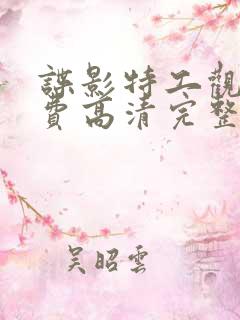 諜影特工觀
費高清完整
吴昭雲